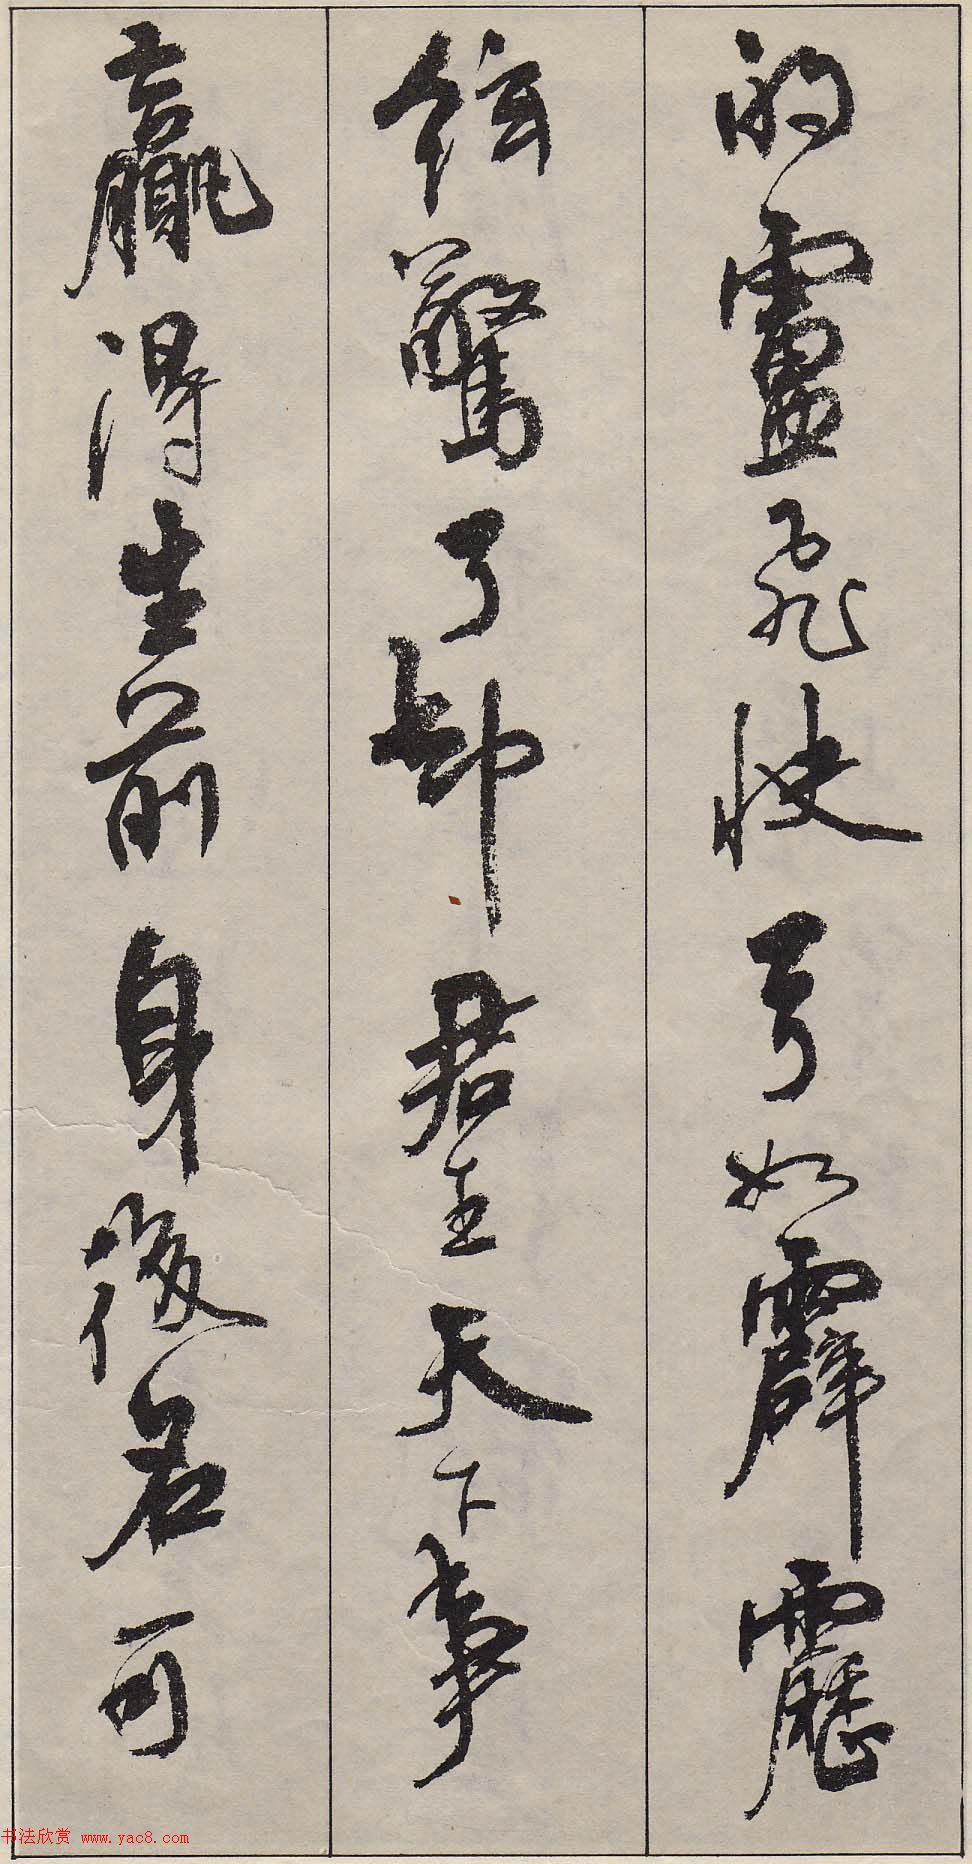 的盧飛快弓如霹靂
弦驚了却君王天下事
贏得生前身後名可
书法欣赏 www.yac8.com